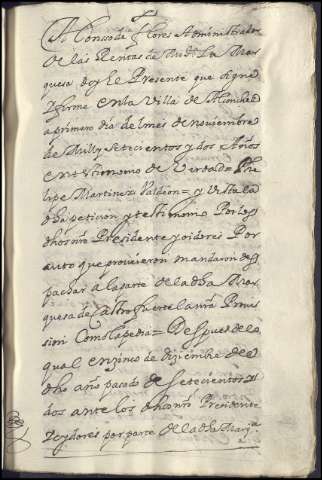 Alonsso de Flores Administrador
de las Rentas de mi Sa. La Mar
quesa doy le Presente que signe
y firme en la Villa de Monched
a primero dia del mes de noviembre
de Mill y setecientos y dos Años
en testimonio de Verdad = Phe
lipe Martinez Valdeon = y Vista la
dha peticion y testimonio Por los
dhos nro Presidente y oidores Por
auto que proveieron mandaron des
pachar a la parte de la dha Mar
quesa de Castro fuerte la nra Provis
sion Como la pedia = Despues de lo
qual en zinco de diziembre del
dho año pasado de setecientos y
dos ante los dho nro Presidente
y oydores por parte de la dha Marqa